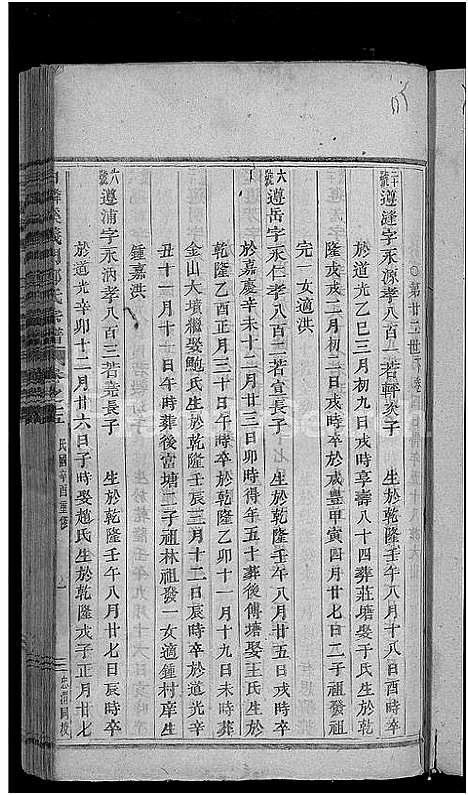 二十號遵逢字永源孝八百二若軒次子 生於乾隆壬午八月十八日酉時卒
於道光乙巳三月初九日戌時享壽八十四葬莊塘娶于氏生於乾
隆戊戌二月初二日戌時卒於咸豐甲寅四月廿七日二子祖發祖
完一女適洪
六號遵岳字永仁孝八百二若宣長子 生於乾隆壬午八月廿五日戌時卒
於嘉慶辛未十二月廿三日卯時得年五十葬後傅塘娶王氏生於
乾隆乙酉正月三十日午時卒於乾隆乙卯十一月十九日未時葬
金山大墳繼娶鮑氏生於乾隆壬辰三月十二日辰時卒於道光辛
丑十一月十一日午時葬後富塘二子祖林祖發一女適鍾村庠生
鍾嘉洪
六號遵浦字永汭孝八百三若堯長子 生於乾隆壬午八月廿七日辰時卒
於道光辛卯十二月廿六日子時娶趙氏生於乾隆戊子正月廿七
義門鄭氏宗譜 民國辛酉重修